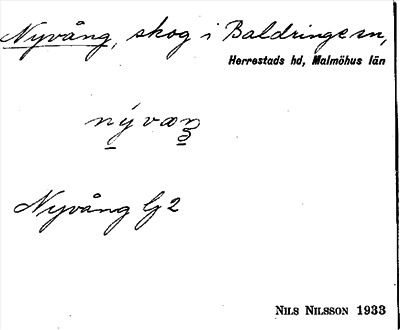 Nyvång, skog i Baldringe sn,
Herrestads hd, Malmöhus län
Nyvång G 2
NILS NILSSON 1933